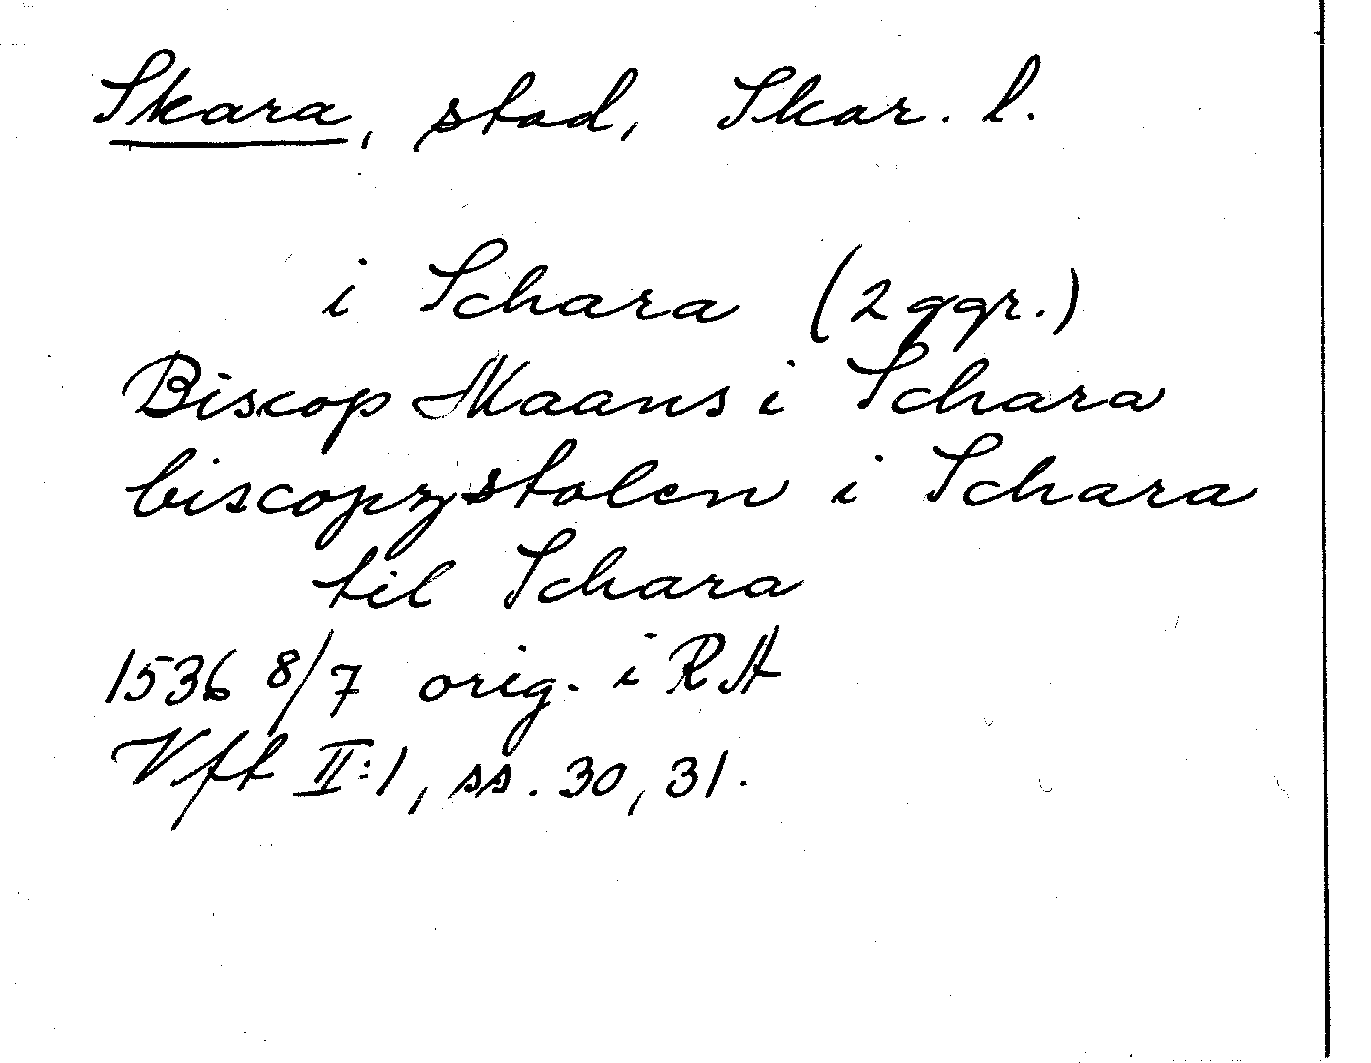 Skara, stad, Skar. l.
i Schara (2 ggr.)
Biscop Maans i Schara
biscopzstolen i Schara
til Schara
1536 8/7 orig. i RA
Vft II:1, ss. 30, 31.